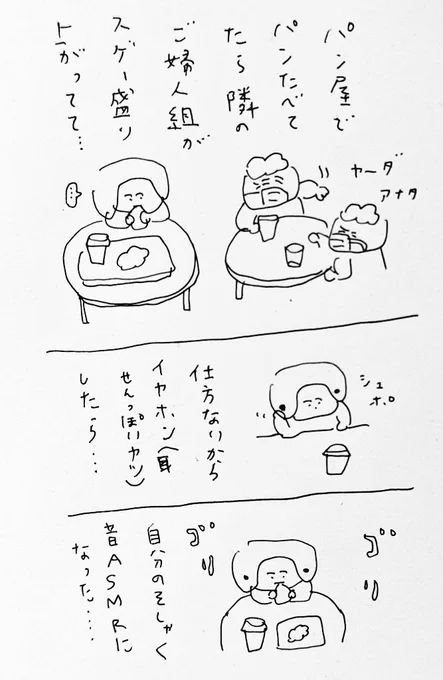 パン屋で
パンたべて
たら隣の
ご婦人組が
スゲー盛り
上がってて…
ヤーダ
アナタ
…
シュ
ポ
仕方ないから
イヤホン(耳
せんっぽいヤツ)
したら…
ゴリ
ゴリ
自分のそしゃく
音ASMRに
なった…